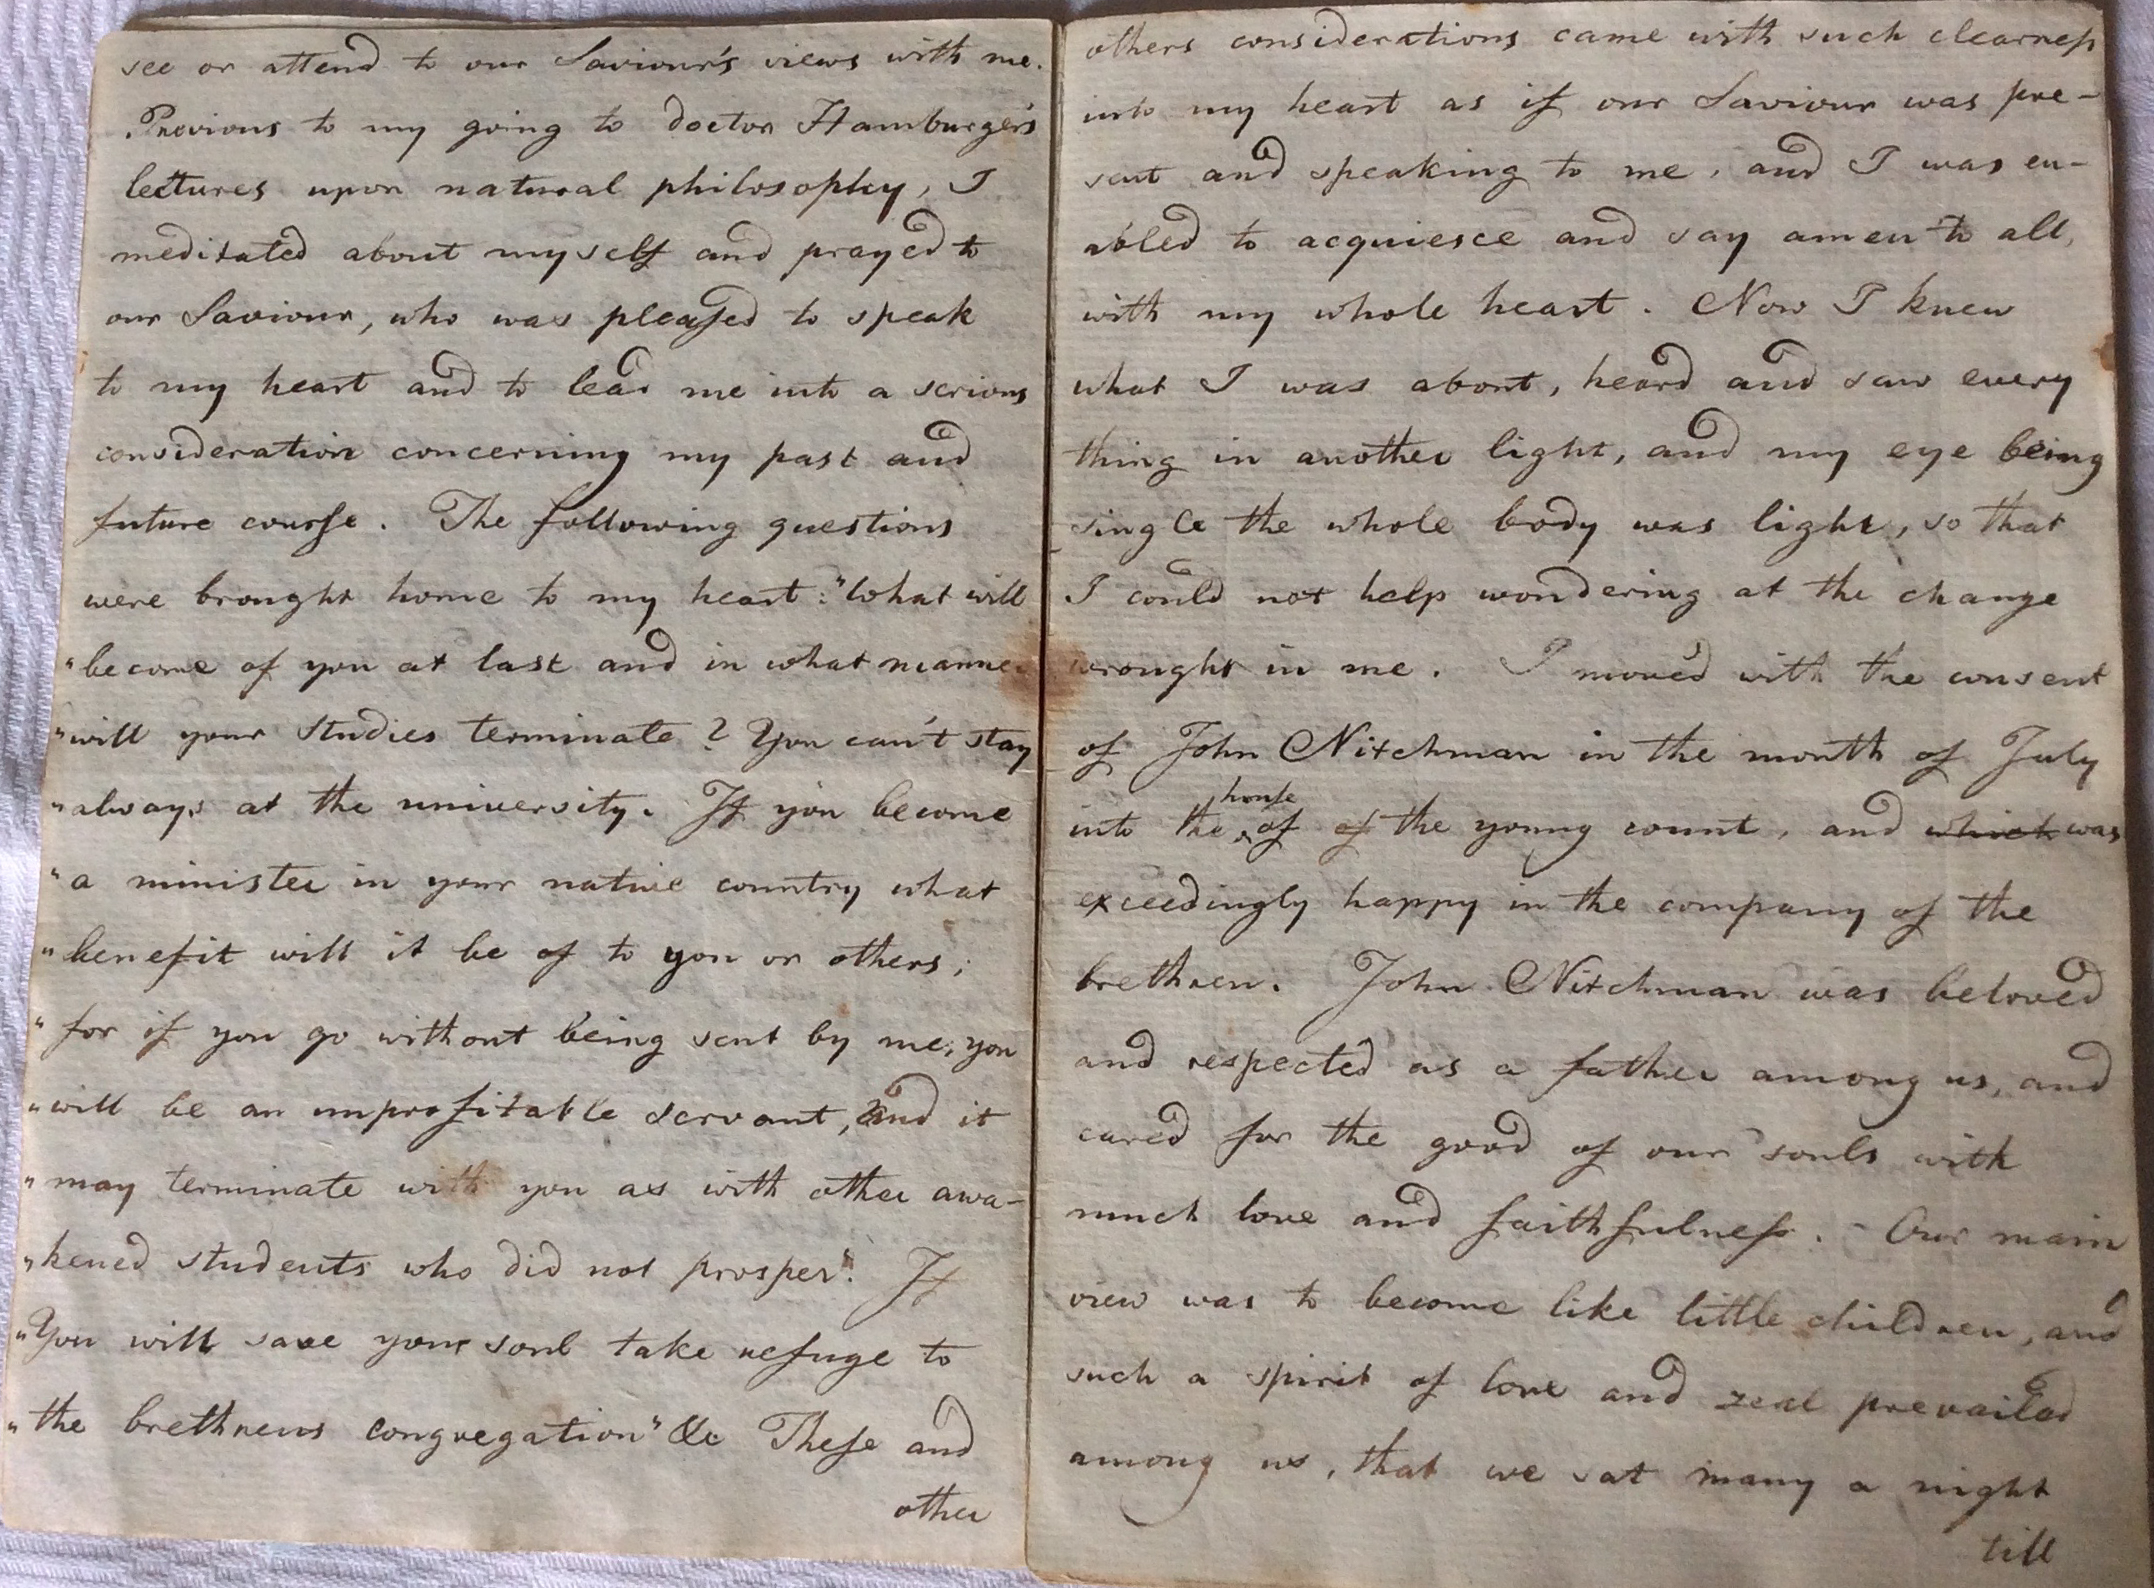 see or attend to our Saviour's views with me.
Previous to my going to doctor Hamburger's
lectures upon natural philosophy, I
meditated about myself and prayed to
our Saviour, who was pleaſed to speak
to my heart and to lead me into a serious
consideration concerning my past and
future courſe. The following questions
were brought home to my heart: "What will
"become of you at last and in what manner
"will your studies terminate? You can't stay
"always at the university. If you become
"a minister in your native country what
"benefit will it be of to you or others;
"for if you go without being sent by me, you
"will be an unprofitable servant, and it
"may terminate with you as with other awa-
"kened students who did not prosper". If
"You will save your soul take refuge to
"the brethrens congregation" &c Theſe and
other
others considerations came with such clearneſs
into my heart as if our Saviour was pre-
sent and speaking to me, and I was en-
abled to acquiesce and say amen to all,
with my whole heart. Now I knew
what I was about, heard and saw every
thing in another light, and my eye being
single the whole body was light, so that
I could not help wondering at the change
wrought in me. I moved with the consent
of John Nitchman in the month of July
into the houſe of of the young count, and which was
exceedingly happy in the company of the
brethren. John Nitchman was beloved
and respected as a father among us, and
cared for the good of our souls with
much love and faithfulneſs. - Our main
view was to become like little children, and
such a spirit of love and zeal prevailed
among us, that we sat many a night
till